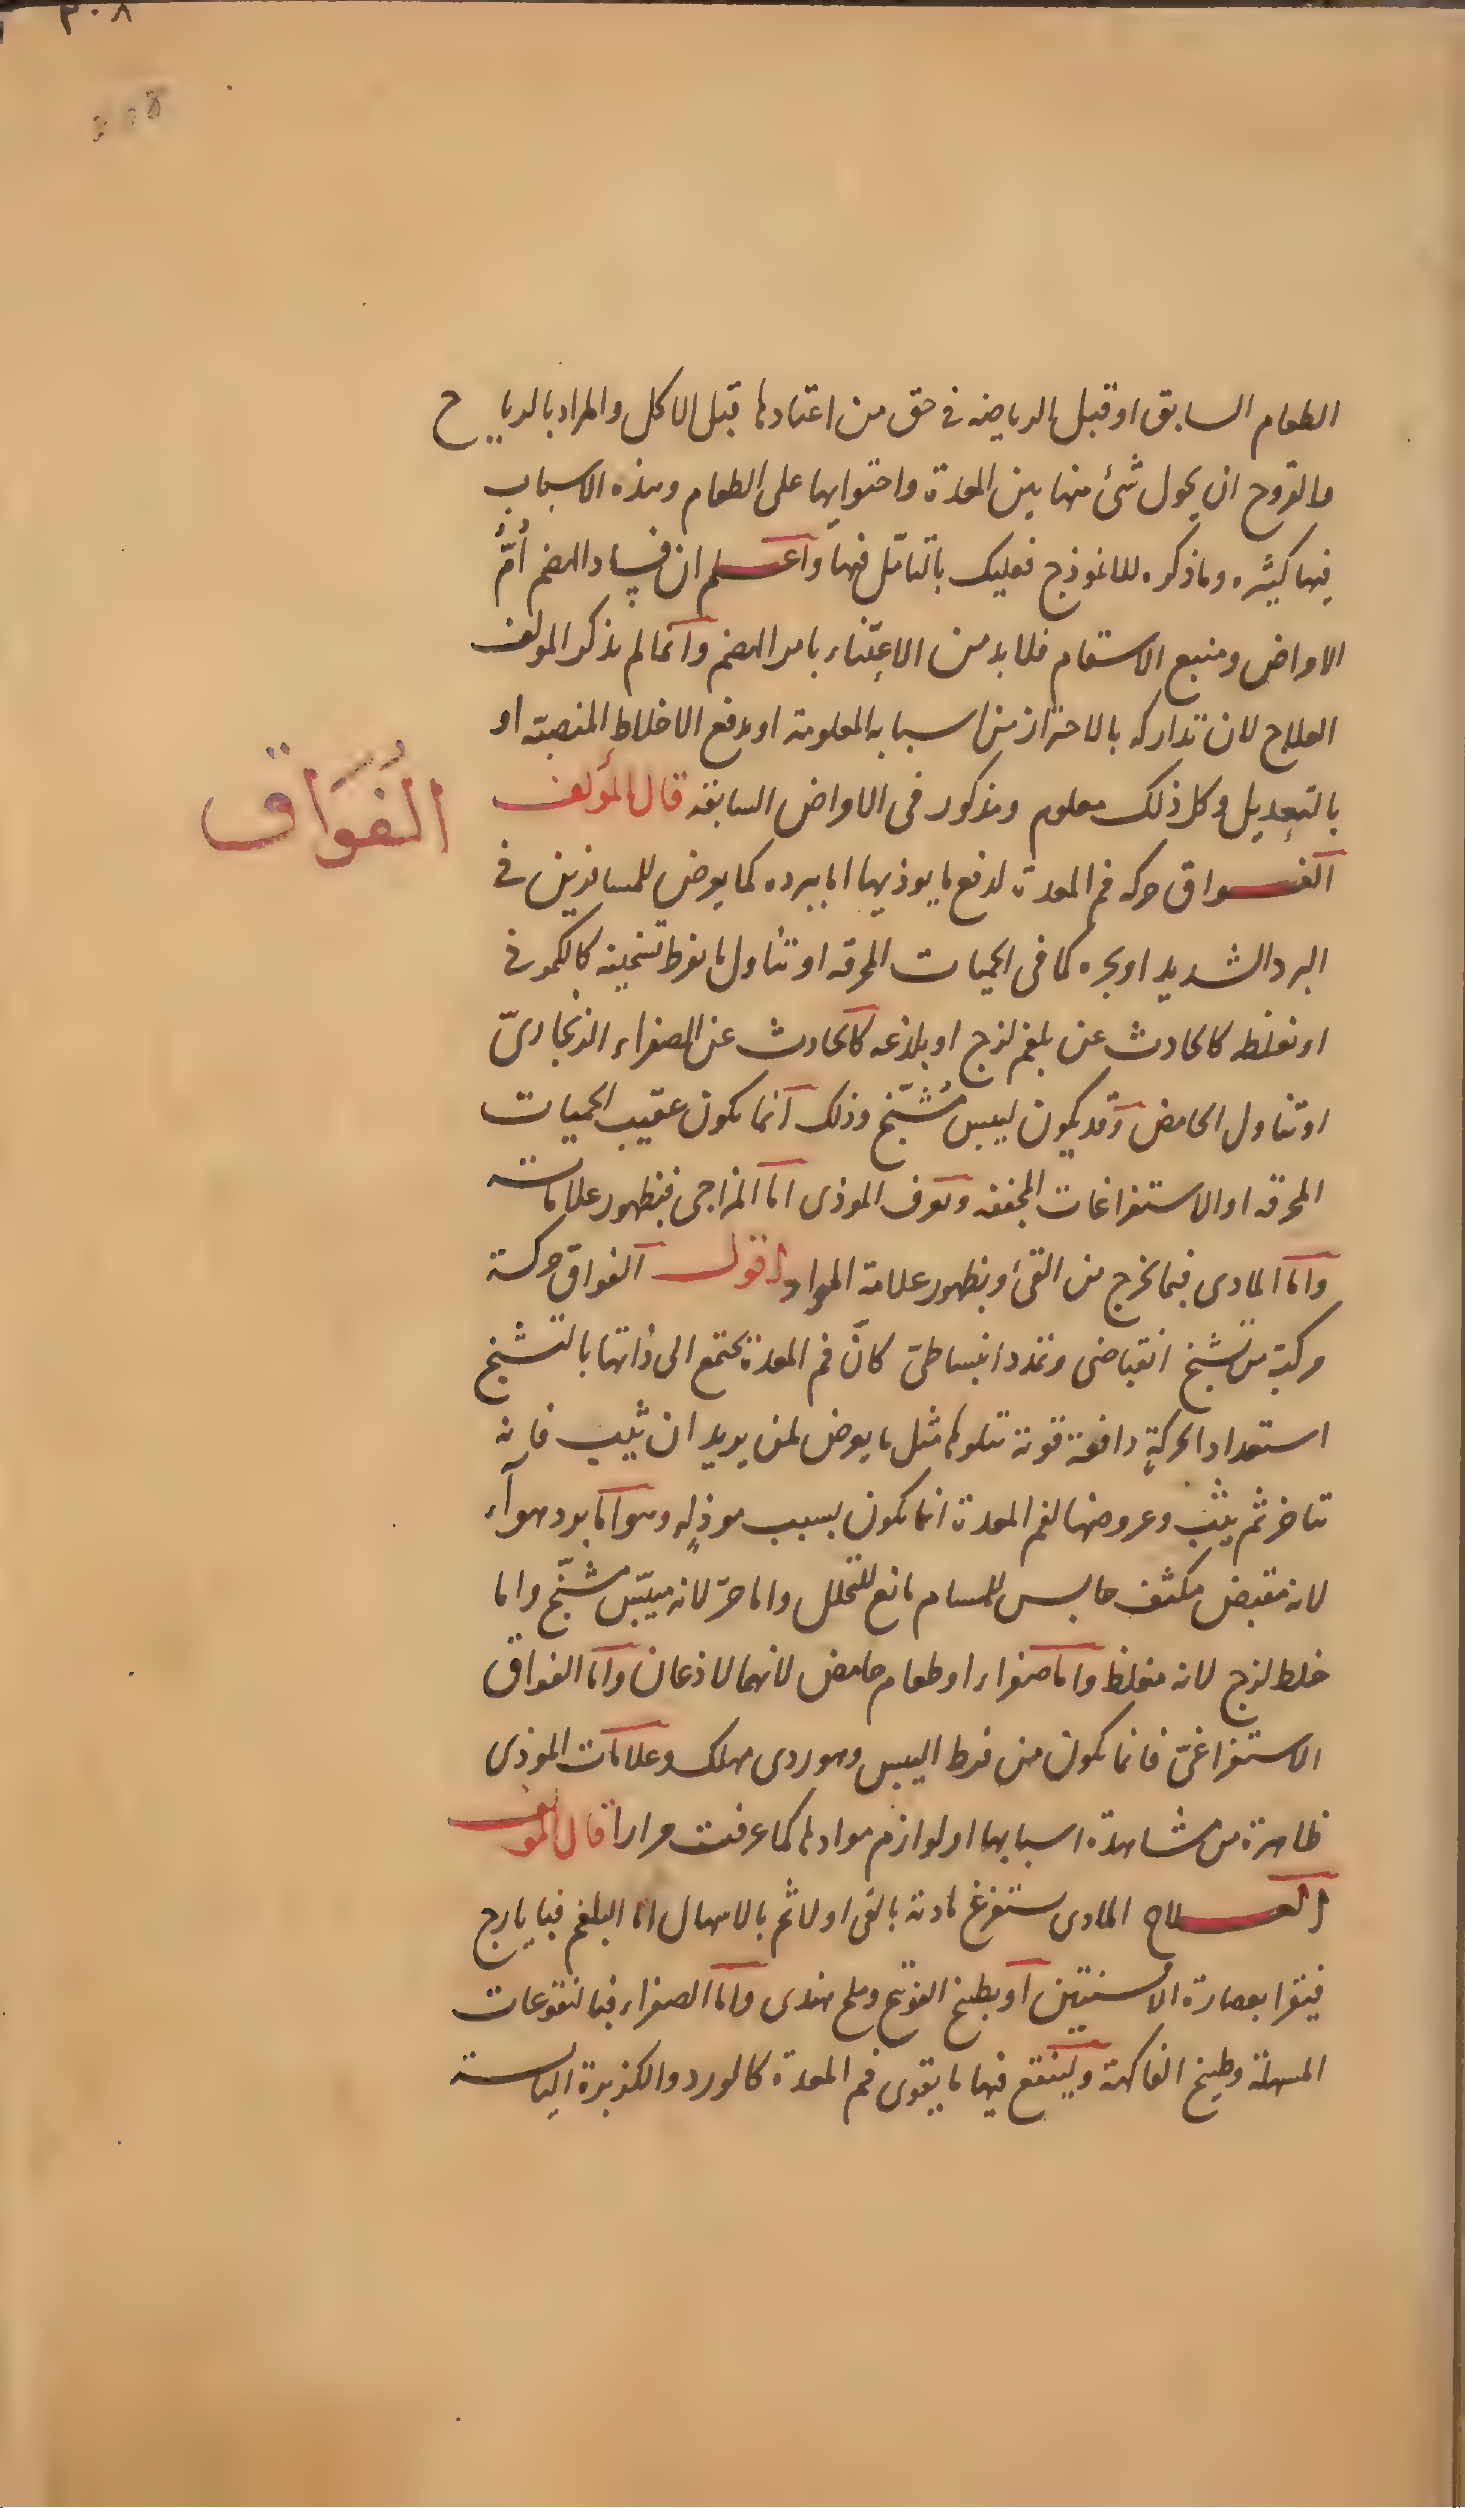 ٣٠٨
الطعام السابق او قبل الرياضه فى حق من اعتادها قبل الاكل والمراد بالرياح
والقروح ان يحول شئ منها بين المعدة واحتوايها على الطعام وهذه الاسباب
فيها كثيره وماذكره للانموذج فعليك بالتامّل فيها واعلم ان فساد الهضم اُمّ
الامراض ومنبع الاسقام فلابد من الاعتناء بامر الهضم وانما لم يذكر المولف
العلاج لان تداركه بالاحتراز من اسبابه المعلومة او بدفع الاخلاط المنصبّة او
بالتعديل وكل ذلك معلوم ومذكور فى الامراض السابقه قال المؤلف
الفُوَاق
الفواق حركه فم المعدة لدفع ما يوذيها اما ببرده كما يعرض للمسافرين فى
البرد الشديد او بحره كما فى الحميات المحرقه او تناول ما يفرط تسخينه كالكمون
او بغلظه كالحادث عن بلغم لزج او بلذعه كالحادث عن الصفراء الزنجاريّ
او تناول الحامض وقد يكون ليبس مُشنّج وذلك انما يكون عقيب الحميات
المحرقه او الاستفراغات المجففه ويعرف الموذى اما المزاجى فبظهور علاماته
واما المادى فبما يخرج من القئ وبظهور علامة المواد اقول الفواق حركة
مركبة من تشنج انقباضى وتمدد انبساطىّ كانّ فم المعدة يجتمع الى ذاتها بالتشنج
استعداد الحركةٍ دافعة قوية تتلوها مثل ما يعرض لمن يريد ان يثب فانه
يتاخر ثم يثب وعروضها لفم المعدة انما يكون بسبب موذٍ له وهو اما برد هوآء
لانه مقبض مكثف حابس للمسام مانع للتحلل واما حرّ لانه ميبّس مشنّج واما
خلط لزج لانه مغلظ واما صفراء او طعام حامض لانهما لاذعان واما الفواق
الاستفراغىّ فانما يكون من فرط اليبس وهو ردى مهلك وعلامات الموذى
ظاهرة من مشاهدة اسبابها او لوازم موادها كما عرفت مرارا قال المولف
العلاج المادى يستفرغ مادته بالقى اولا ثم بالاسهال اما البلغم فبايارج
فيقرا بعصارة الافسنتين او بطبخ الفوتنج وملح هندى واما الصفراء فبالنقوعات
المسهلة وطبيخ الفاكهة ولينقع فيها ما يقوى فم المعدة كالورد والكزبرة اليابسة